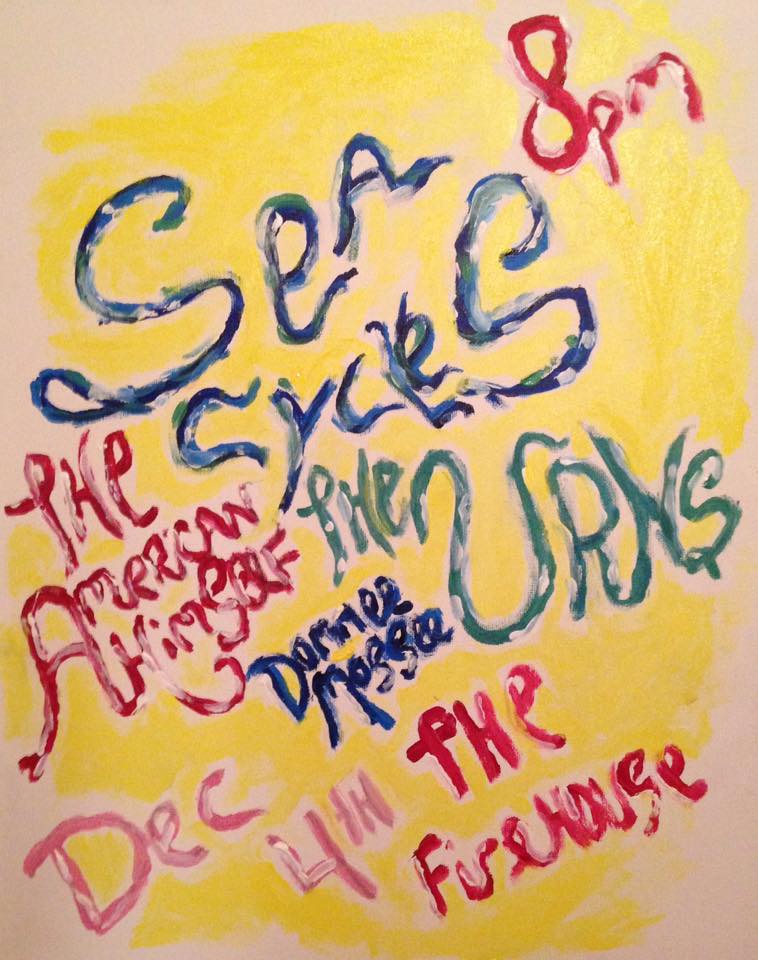 8pm
SeA
CycleS
THe
AmericaN
HimSelF
THe URNS
Dec 4TH
THe
FireHouse